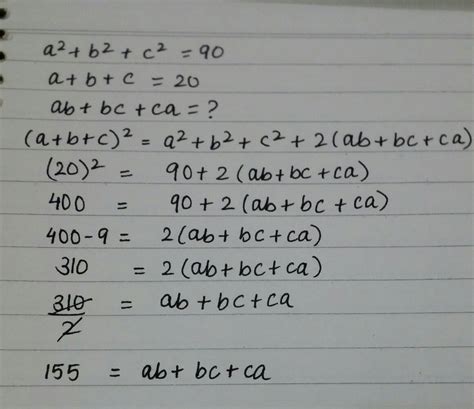 a² + b² + c² = 90
a + b + c = 20
ab + bc + ca = ?
(a+b+c)² = a² + b² + c² + 2(ab+bc+ca)
(20)² = 90 + 2(ab+bc+ca)
400 = 90 + 2(ab + bc + ca)
400-9 = 2(ab + bc + ca)
310 = 2(ab + bc + ca)
310/2 = ab + bc + ca
155 = ab + bc + ca